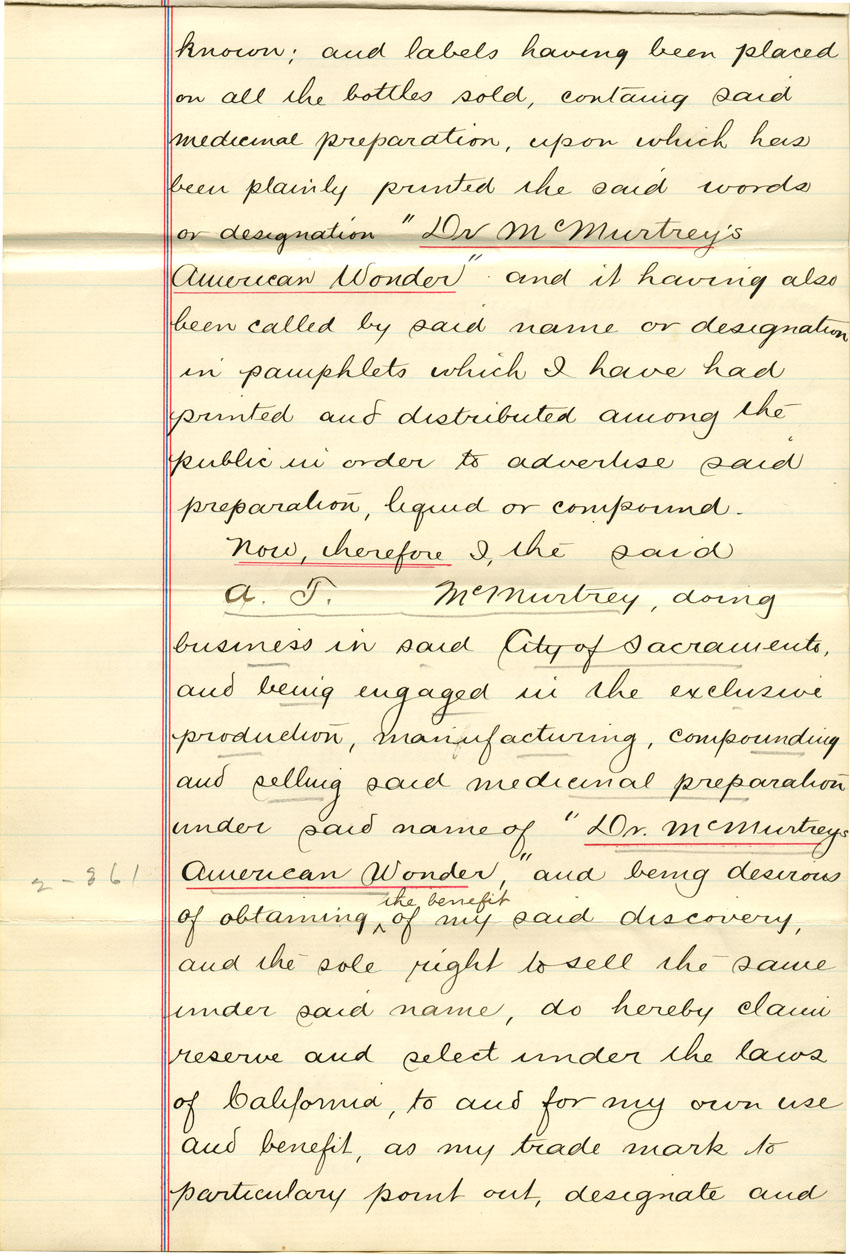 known; and labels having been placed
on all the bottles sold, containg said
medicinal preparation, upon which has
been plainly printed the said words
or designation "Dr McMurtrey's
American Wonder" and it having also
been called by said name or designation
in pamphlets which I have had
printed and distributed among the
public in order to advertise said
preparation, liquid or compound.
Now, therefore I, the said
A. T. McMurtrey, doing
business in said City of Sacramento,
and being engaged in the exclusive
production, manufacturing, compounding
and selling said medicinal preparation
under said name of "Dr. McMurtreys
2-861
American Wonder," and being desirous
of obtaining ^ the benefit of my said discovery,
and the sole right to sell the same
under said name, do hereby claim
reserve and select under the laws
of California, to and for my own use
and benefit, as my trade mark to
particulary point out, designate and